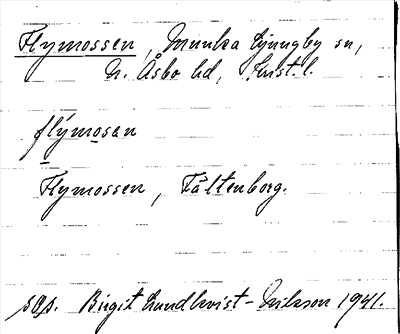 Flymossen, Munka Ljungby sn,
N. Åsbo hd, Krist. l.
flýmosan
Flymossen, Fältenborg.
sop. Birgit Lundkvist-Nilsson 1941.